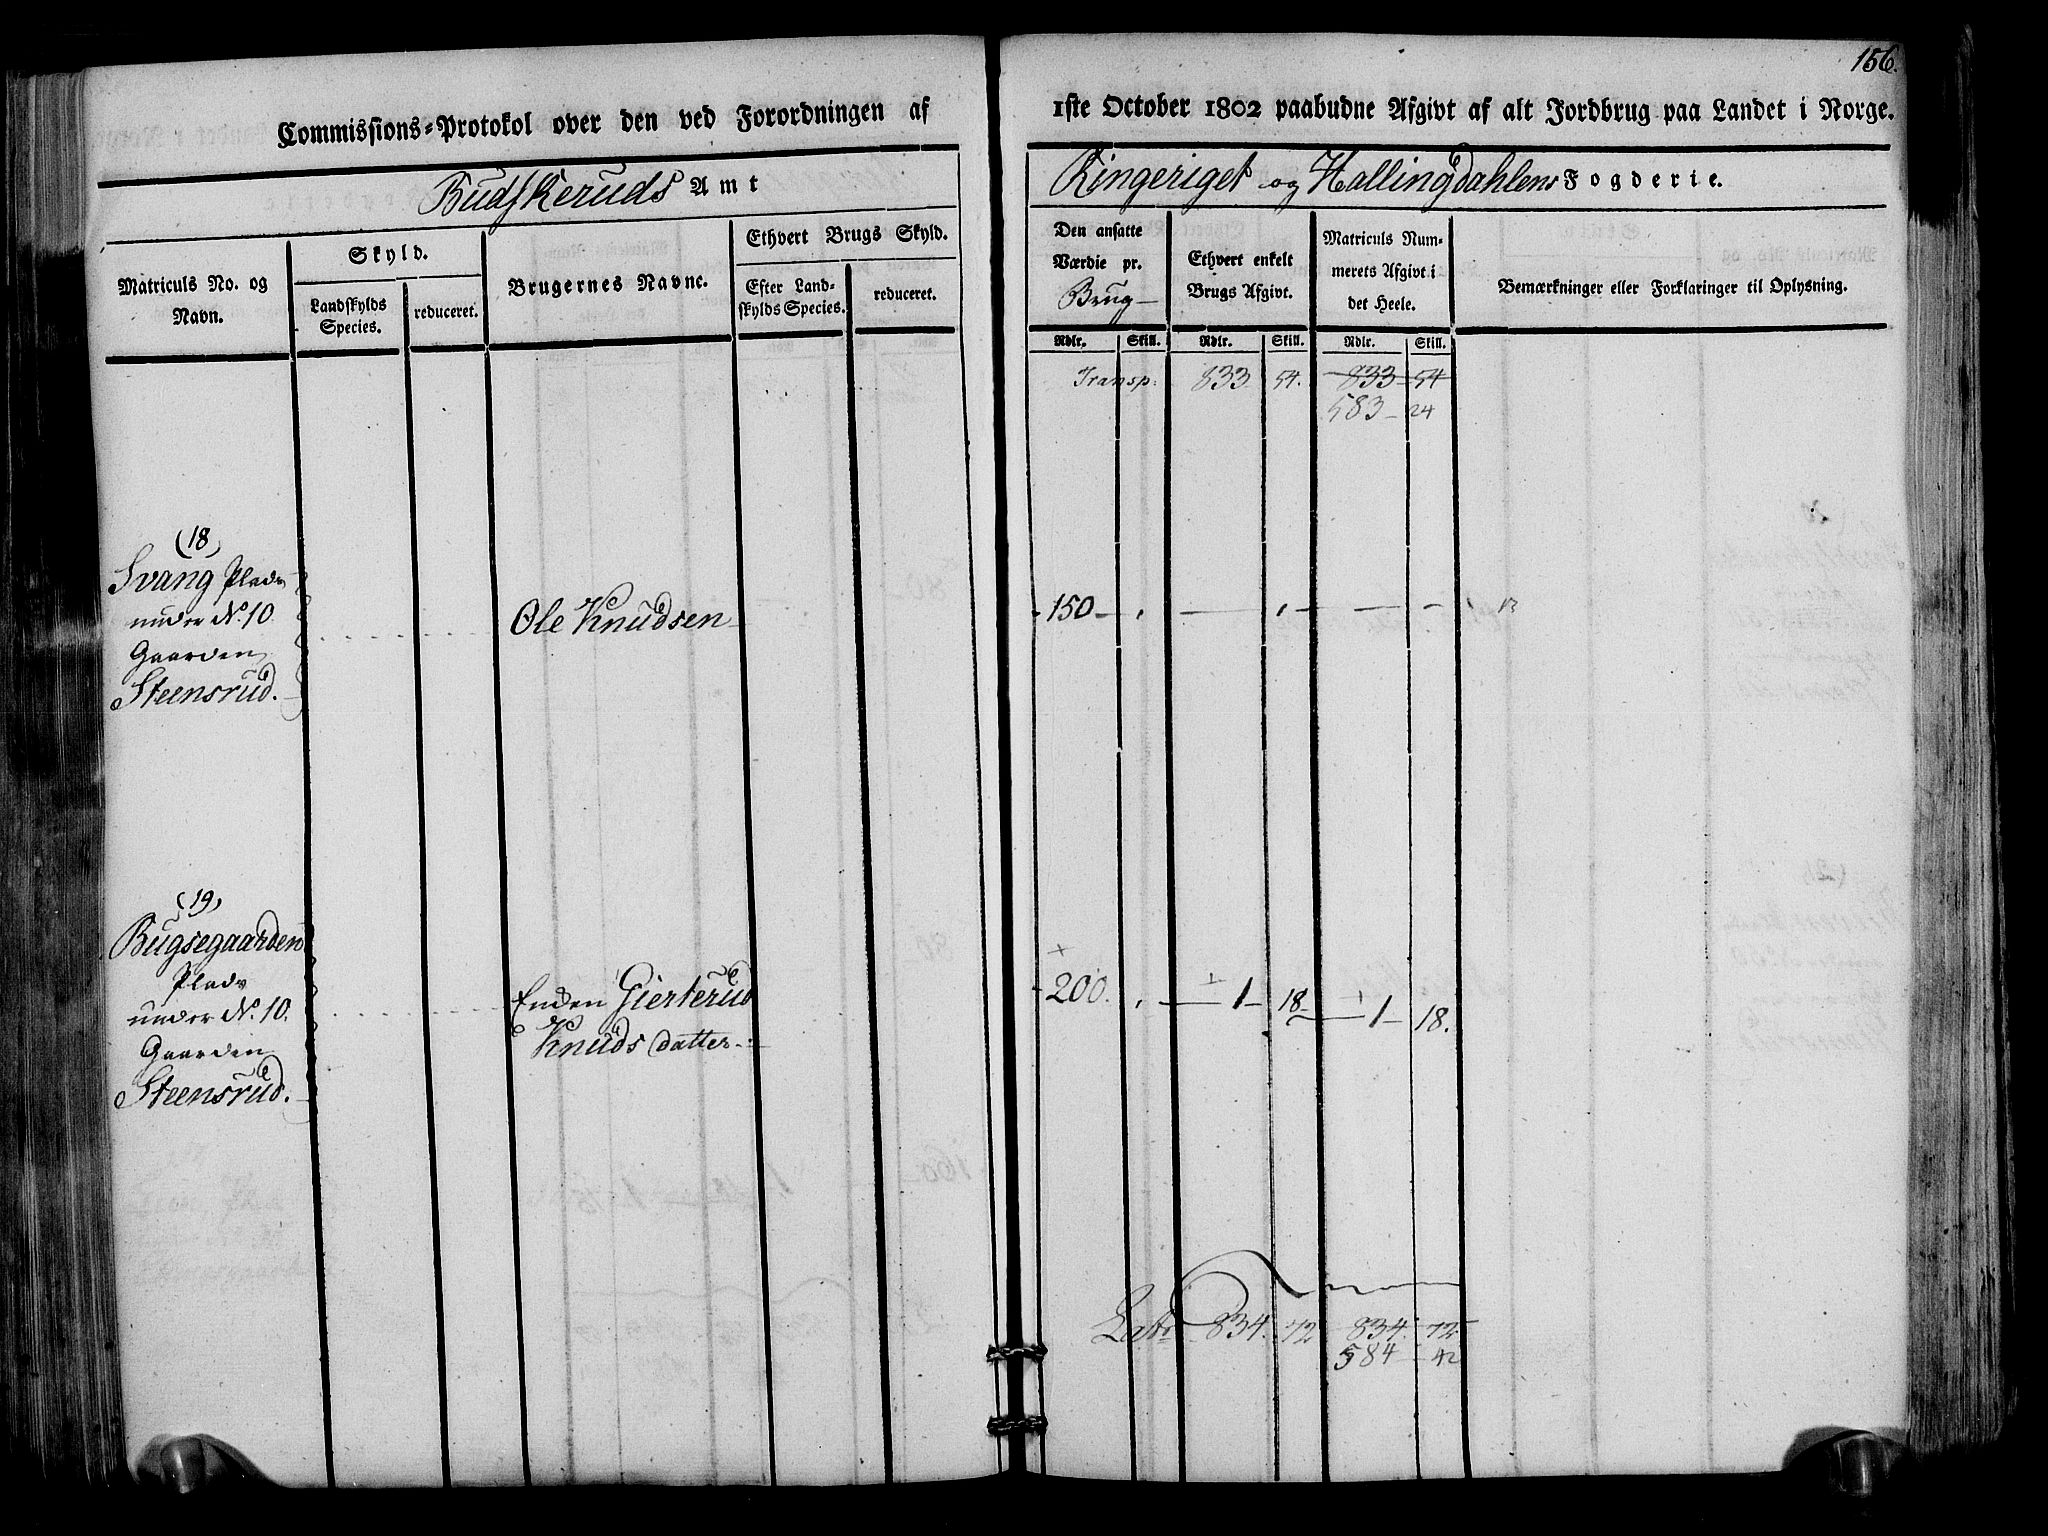 156.
Commissions-Protokol over den ved Forordningen af 1ste October 1802 paabudne Afgivt af alt Jordbrug paa Landet i Norge.
Budskeruds Amt
Ringeriget og Hallingdahlens Fogderie.
Matriculs No. og Navn.
Skyld.
Landskylds Species.
reduceret.
Brugernes Navne.
Ethvert Brugs Skyld.
Efter Landskylds Species.
reduceret.
Den ansatte Værdie pr. Brug
Ethvert enkelt Brugs Afgivt.
Matriculs Nummerets Afgivt i det Heele.
Bemærkninger eller Forklaringer til Oplysning.
Rdlr. Skill. Rdlr. Skill. Rdlr. Skill.
Transp: 833 54. 833 54
583 24
(18)
Svang Plads
under N. 10
Gaarden
Steensrud.
Ole Knudsen
150
(19)
Bugsegaarden
Plads
under N. 10.
Gaarden
Steensrud.
Enken Gierterud
Knuds datter
200. 1 18 1 18.
Lat 834. 72 834. 72
584 42